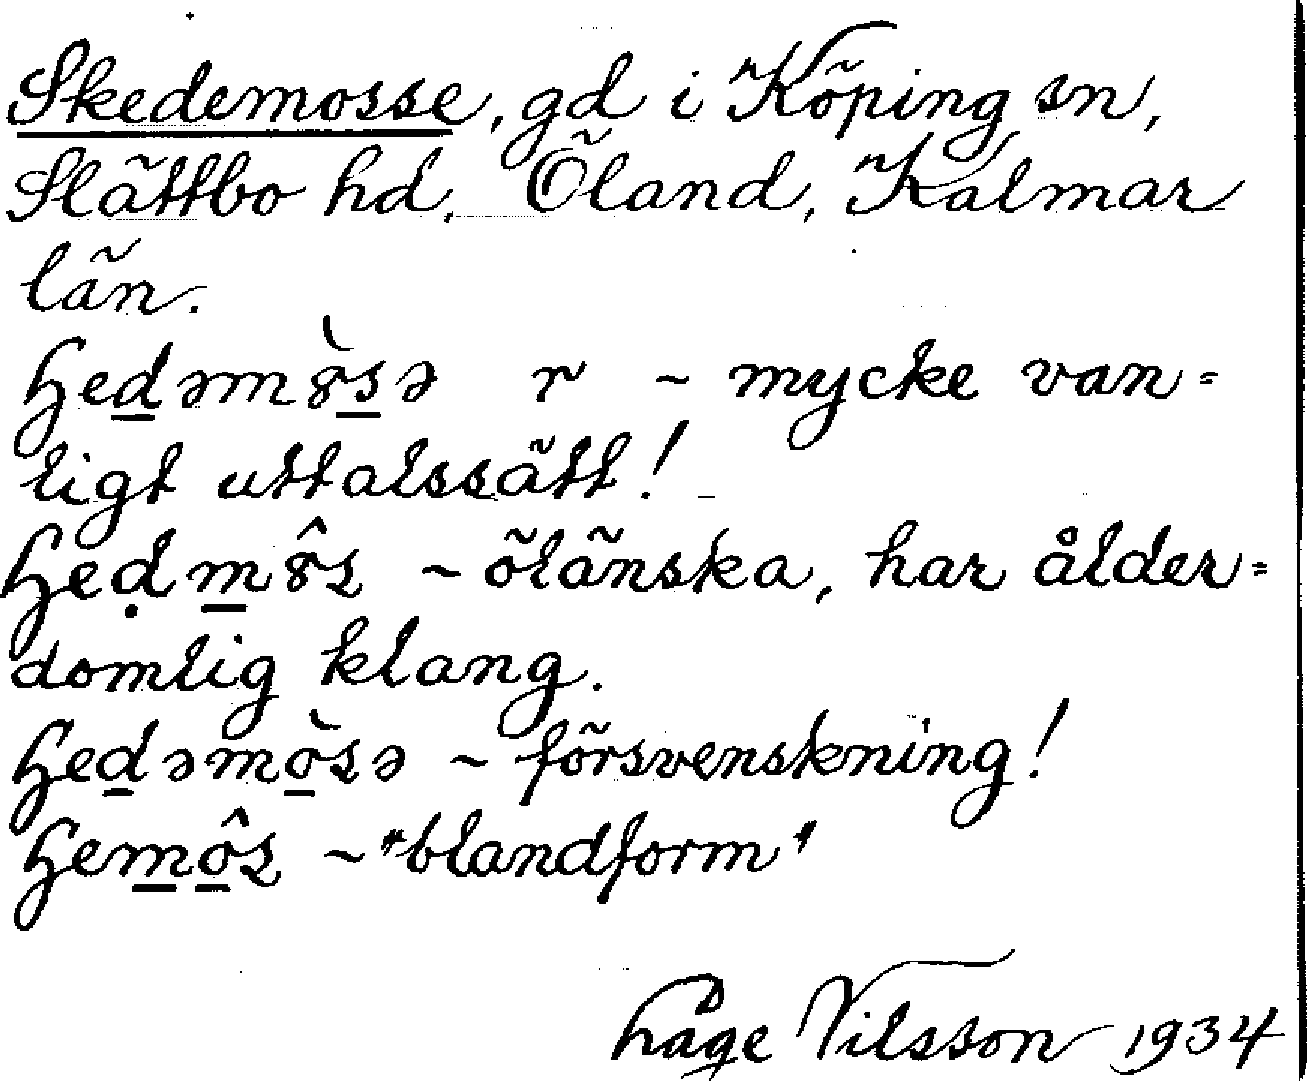 Skedemosse, gd i Köping sn,
Slättbo hd, Öland, Kalmar
län.
ɧedəmòsə r ~ mycke van=
ligt uttalssätt!
ɧeḍmôs ~ öländska, har ålder=
domlig klang.
ɧedəmòsə ~ försvenskning!
ɧemôs ~ "blandform"
Åge Nilsson 1934